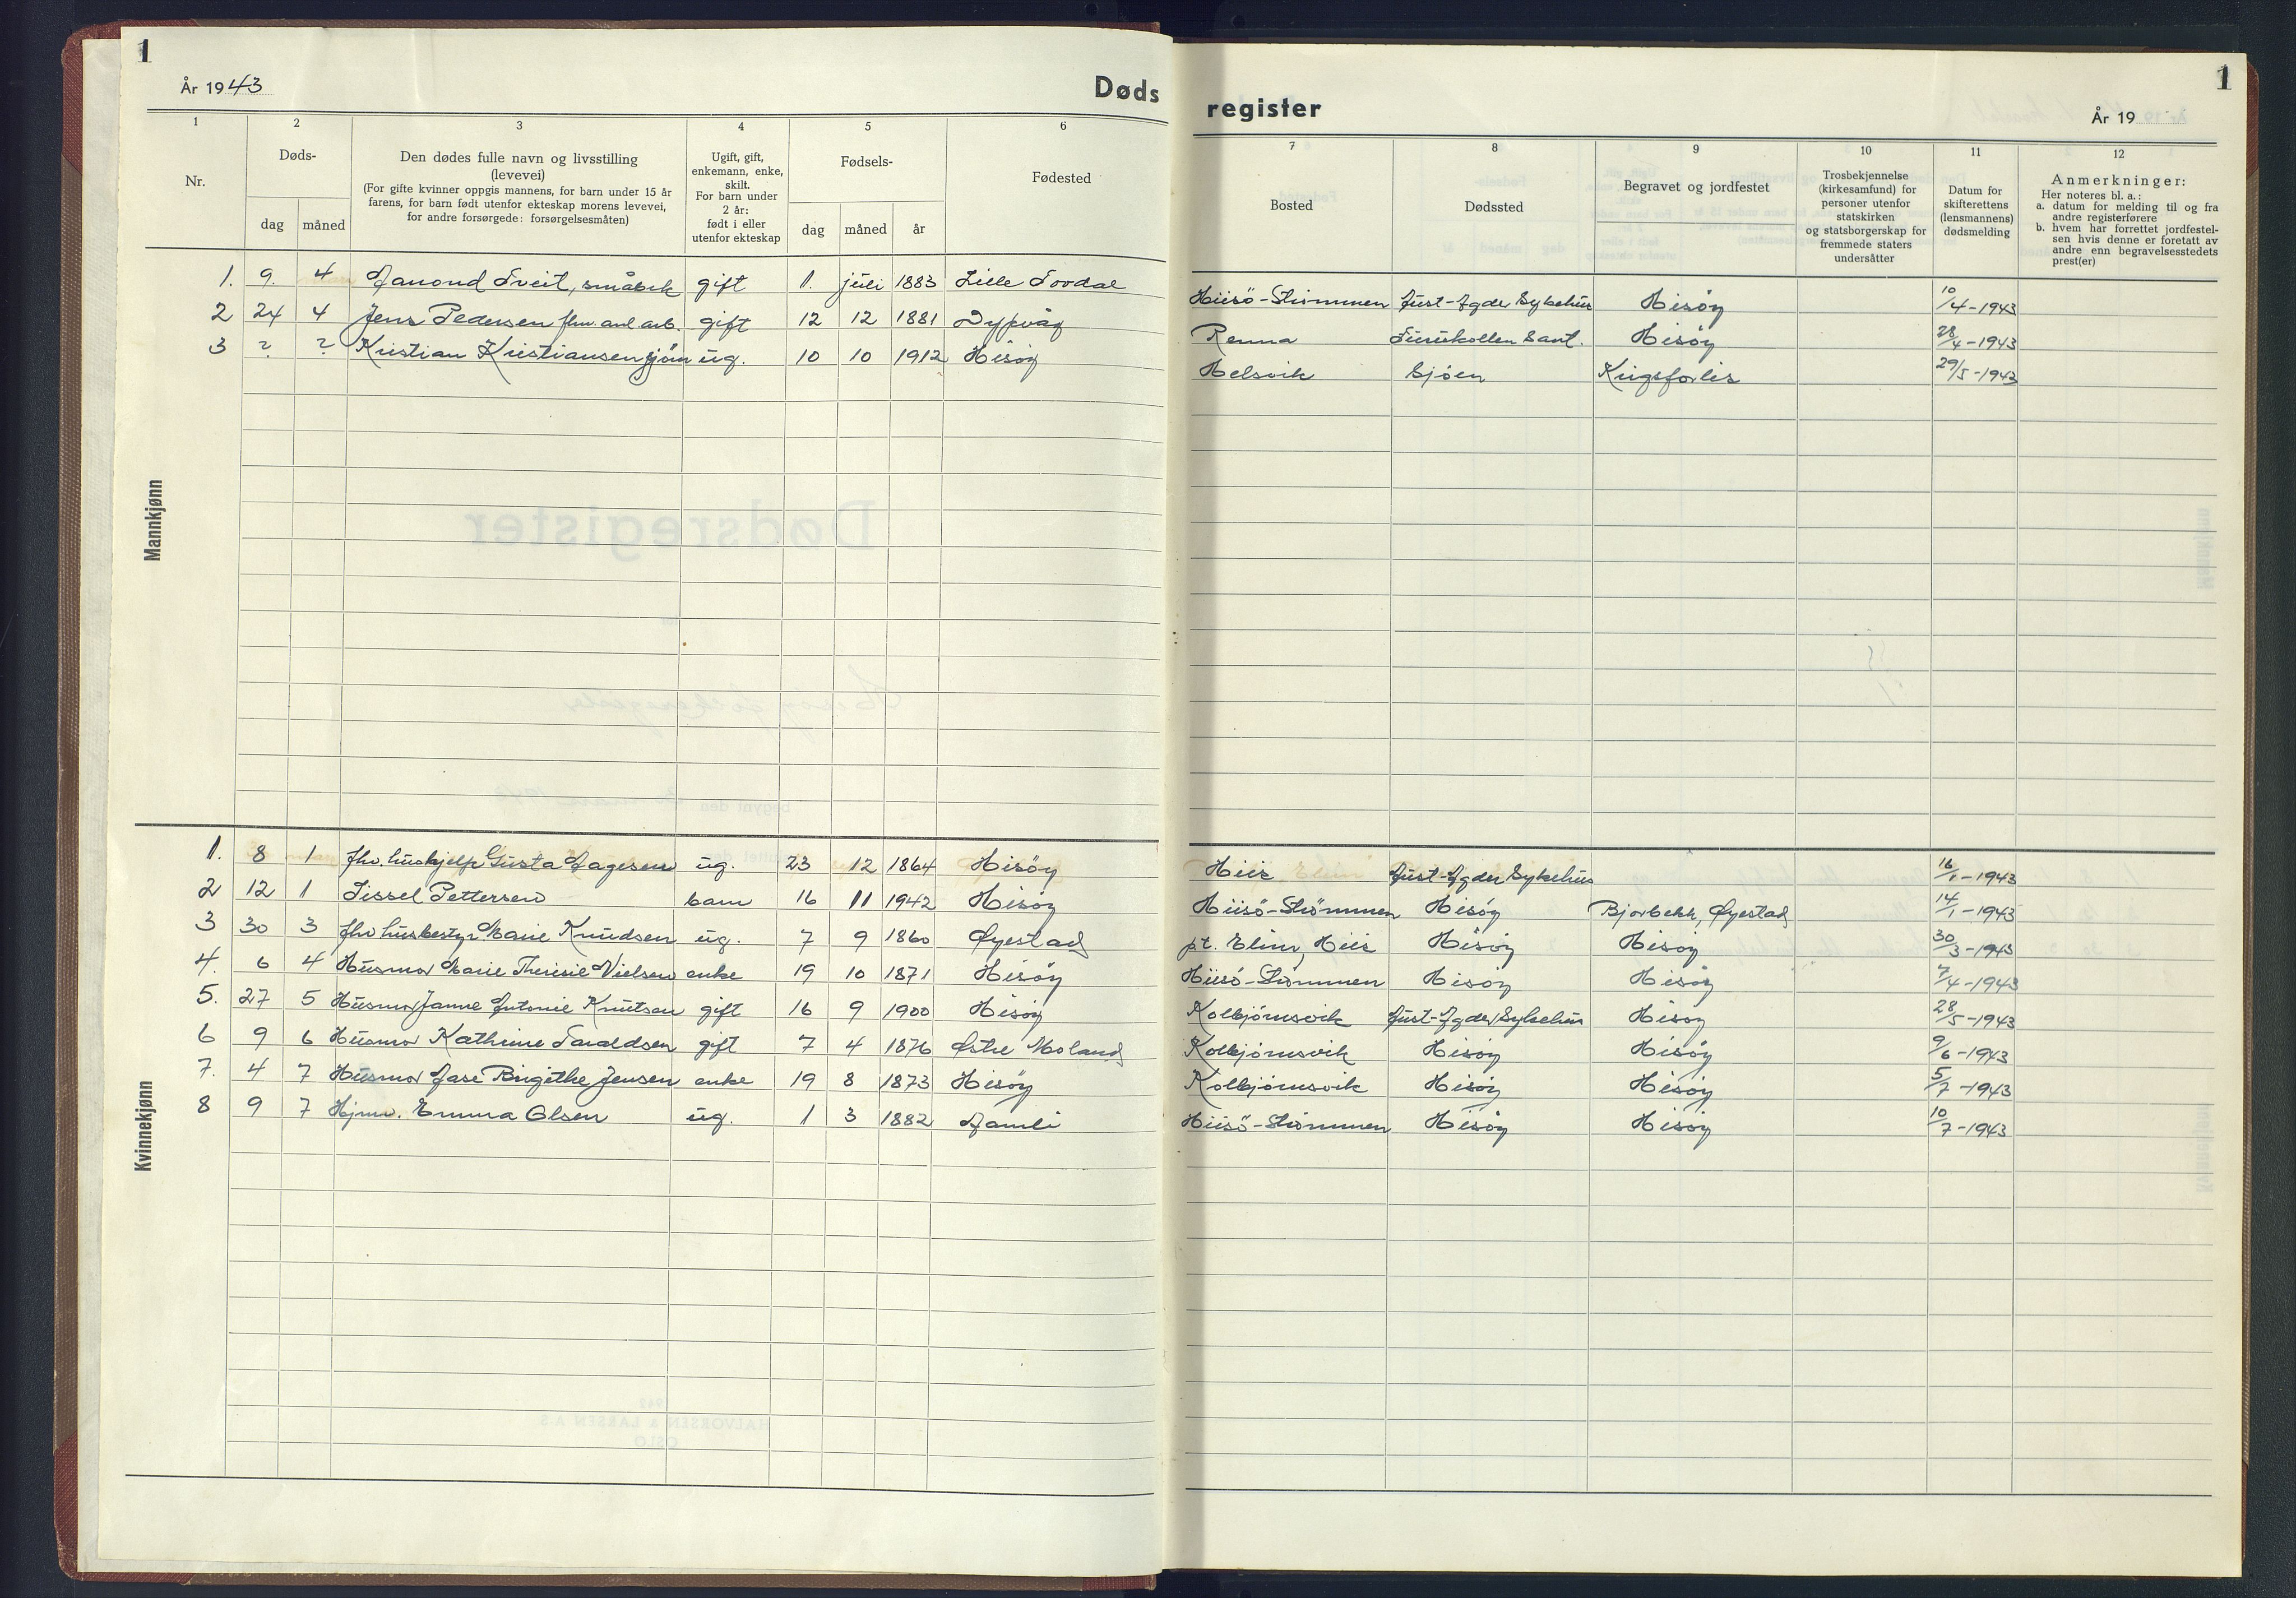 1
1
År 1943
Døds
register
År 19
1
2
3
4
5
6
7
8
9
10
11
12
Nr.
Døds-
dag
måned
Den dødes fulle navn og livsstilling
(levevei)
(For gifte kvinner oppgis mannens, for barn under 15 år
farens, for barn født utenfor ekteskap morens levevei,
for andre forsørgede: forsørgelsesmåten)
Ugift, gift,
enkemann, enke,
skilt.
For barn under
2 år:
født i eller
utenfor ekteskap
Fødsels-
dag
måned
år
Fødested
Bosted
Dødssted
Begravet og jordfestet
Trosbekjennelse
(kirkesamfund) for
personer utenfor
statskirken
og statsborgerskap for
fremmede staters
undersåtter
Datum for
skifterettens
(lensmannens)
dødsmelding
Anmerkninger:
Her noteres bl. a.:
a. datum for melding til og fra
andre registerførere
b. hvem har forrettet jordfestel-
sen hvis denne er foretatt av
andre enn begravelsesstedets
prest(er)
Mannkjønn
1. 9. 4 Aanond Tveit, småbrk gift 1. juli 1883 Lille Tovdal Hiisö-Strömmen Aust-Agder Sykehus Hisöy 10/4-1943
2 24 4 Jens Pedersen fhv. anl. arb. gift 12 12 1881 Dypvåg Renna Furukollen Sant. Hisöy 28/4-1943
3 ? ? Kristian Kristiansen sjöm ug. 10 10 1912 Hisöy Helsvik Sjöen Krigsforlis 29/5-1943
Kvinnekjønn
1. 8 1 Fhv. hushjelp Gusta Aagesen ug. 23 12 1864 Hisöy Hiis Aust-Agder Sykehus 16/1-1943
2 12 1 Sissel Pettersen barn 16 11 1942 Hisöy Hiisö-Strömmen Hisöy Bjorbekk, Øyestad 14/1-1943
3 30 3 Fhv husbestyr Marie Knudsen ug. 7 9 1860 Øyestad p.t. Elim, Hiis Hisöy Hisöy 30/3-1943
4. 6 4 Husmor Marie Theresie Nielsen enke 19 10 1871 Hisöy Hiisö-Strömmen Hisöy Hisöy 7/4-1943
5. 27 5 Husmor Janne Antonie Knutsen gift 16 9 1900 Hisöy Kolbjörnsvik Aust-Agder Sykehus Hisöy 28/5-1943
6 9 6 Husmor Kathrine Taraldsen gift 7 4 1876 Østre Moland Kolbjörnsvik Hisöy Hisöy 9/6-1943
7. 4 7 Husmor Aase Birgithe Jensen enke 19 8 1873 Hisöy Kolbjörnsvik Hisöy Hisöy 5/7-1943
8 9 7 Hjmv. Emma Olsen ug. 1 3 1882 Aamli Hiisö-Strömmen Hisöy Hisöy 10/7-1943